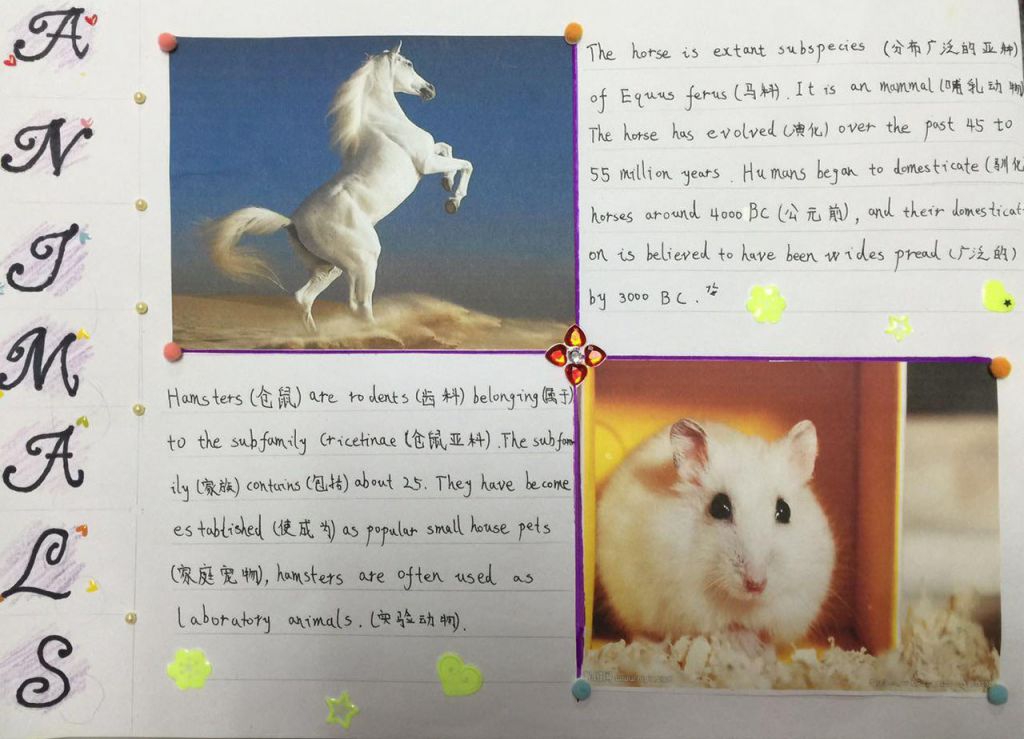 ANIMALS
The horse is extant subspecies (分布广泛的亚种)
of Equus ferus (马科). It is an mammal (哺乳动物
The horse has evolved (演化) over the past 45 to
55 million years. Humans began to domesticate (驯化
horses around 4000 BC (公元前), and their domesticati
on is believed to have been wides pread (广泛的)
by 3000 BC.
Hamsters (仓鼠) are rodents (齿科) belonging (属于)
to the subfamily Cricetinae (仓鼠亚科). The subfam
ily (家族) contains (包括) about 25. They have become
established (使成为) as popular small house pets
(家庭宠物), hamsters are often used as
laboratory animals. (实验动物).